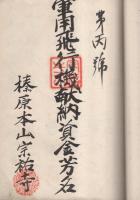 第丙號
軍用飛行機献納資金芳名
榛原本山宗祐寺